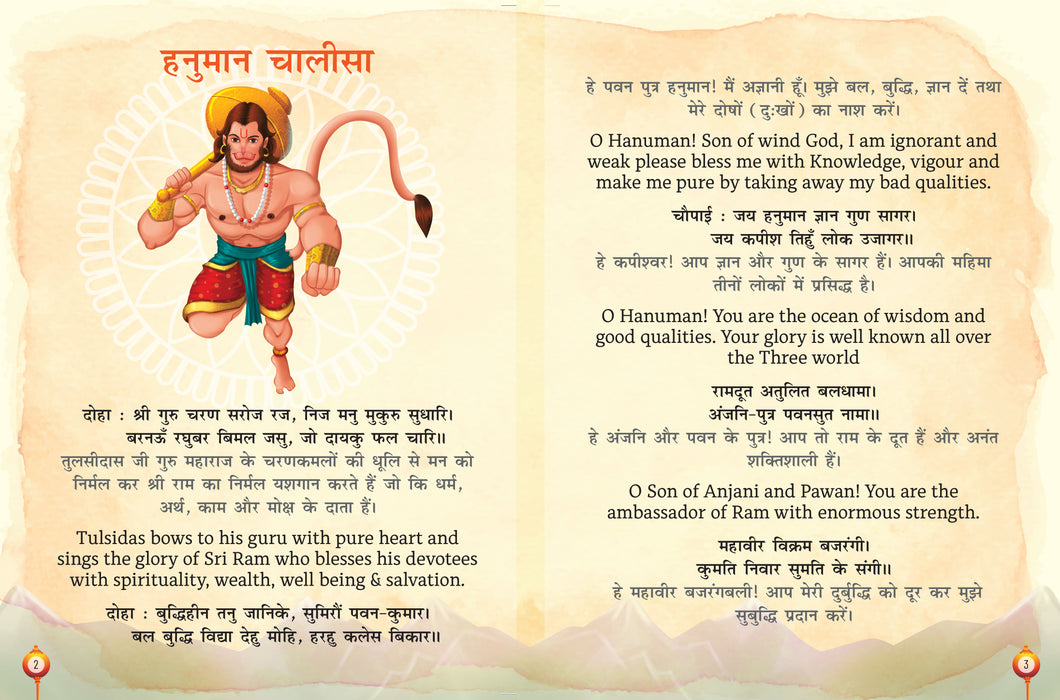 हनुमान चालीसा
दोहा : श्री गुरु चरण सरोज रज, निज मनु मुकुरु सुधारि।
बरनऊँ रघुबर बिमल जसु, जो दायकु फल चारि॥
तुलसीदास जी गुरु महाराज के चरणकमलों की धूलि से मन को
निर्मल कर श्री राम का निर्मल यशगान करते हैं जो कि धर्म,
अर्थ, काम और मोक्ष के दाता हैं।
Tulsidas bows to his guru with pure heart and
sings the glory of Sri Ram who blesses his devotees
with spirituality, wealth, well being & salvation.
दोहा : बुद्धिहीन तनु जानिके, सुमिरौं पवन-कुमार।
बल बुद्धि विद्या देहु मोहि, हरहु कलेस बिकार॥
2
हे पवन पुत्र हनुमान! मैं अज्ञानी हूँ। मुझे बल, बुद्धि, ज्ञान दें तथा
मेरे दोषों (दुःखों) का नाश करें।
O Hanuman! Son of wind God, I am ignorant and
weak please bless me with Knowledge, vigour and
make me pure by taking away my bad qualities.
चौपाई : जय हनुमान ज्ञान गुण सागर।
जय कपीश तिहुँ लोक उजागर॥
हे कपीश्वर! आप ज्ञान और गुण के सागर हैं। आपकी महिमा
तीनों लोकों में प्रसिद्ध है।
O Hanuman! You are the ocean of wisdom and
good qualities. Your glory is well known all over
the Three world
रामदूत अतुलित बलधामा।
अंजनि-पुत्र पवनसुत नामा॥
हे अंजनि और पवन के पुत्र! आप तो राम के दूत हैं और अनंत
शक्तिशाली हैं।
O Son of Anjani and Pawan! You are the
ambassador of Ram with enormous strength.
महावीर विक्रम बजरंगी।
कुमति निवार सुमति के संगी॥
हे महावीर बजरंगबली! आप मेरी दुर्बुद्धि को दूर कर मुझे
सुबुद्धि प्रदान करें।
3